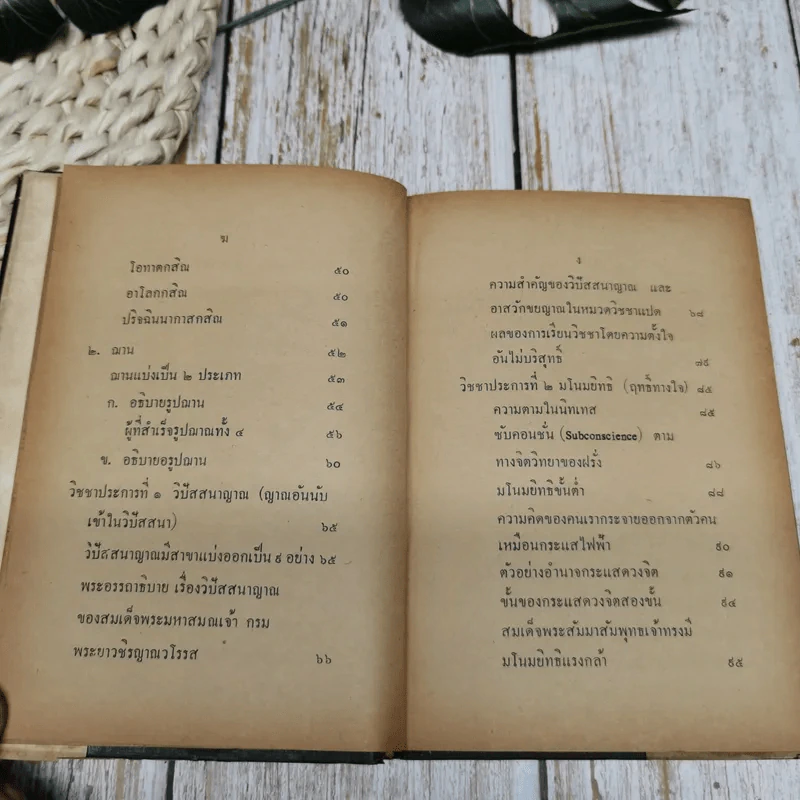 ฆ
โอทาตกสิณ ๕๐
อาโลกกสิณ ๕๐
ปริจฉินนากาสกสิณ ๕๑
๒. ฌาน ๕๒
ฌานแบ่งเป็น ๒ ประเภท ๕๓
ก. อธิบายรูปฌาน ๕๔
ผู้ที่สำเร็จรูปฌาณทั้ง ๔ ๕๖
ข. อธิบายอรูปฌาน ๖๐
วิชชาประการที่ ๑ วิปัสสนาญาณ (ญาณอันนับ
เข้าในวิปัสสนา) ๖๕
วิปัสสนาญาณมีสาขาแบ่งออกเป็น ๙ อย่าง ๖๕
พระอรรถาธิบาย เรื่องวิปัสสนาญาณ
ของสมเด็จพระมหาสมณเจ้า กรม
พระยาวชิรญาณวโรรส ๖๖
ง
ความสำคัญของวิปัสสนาญาณ และ
อาสวักขยญาณในหมวดวิชชาแปด ๖๘
ผลของการเรียนวิชชาโดยความตั้งใจ
อันไม่บริสุทธิ์
วิชชาประการที่ ๒ มโนมยิทธิ (ฤทธิ์ทางใจ) ๘๕
ความตามในนิทเทส ๘๕
ซับคอนชั่น (Subconscience) ตาม
ทางจิตวิทยาของฝรั่ง ๘๖
มโนมยิทธิขั้นต่ำ ๘๘
ความคิดของคนเรากระจายออกจากตัวคน
เหมือนกระแสไฟฟ้า ๙๐
ตัวอย่างอำนาจกระแสดวงจิต ๙๑
ขั้นของกระแสดวงจิตสองขั้น ๙๔
สมเด็จพระสัมมาสัมพุทธเจ้าทรงมี
มโนมยิทธิแรงกล้า ๙๕